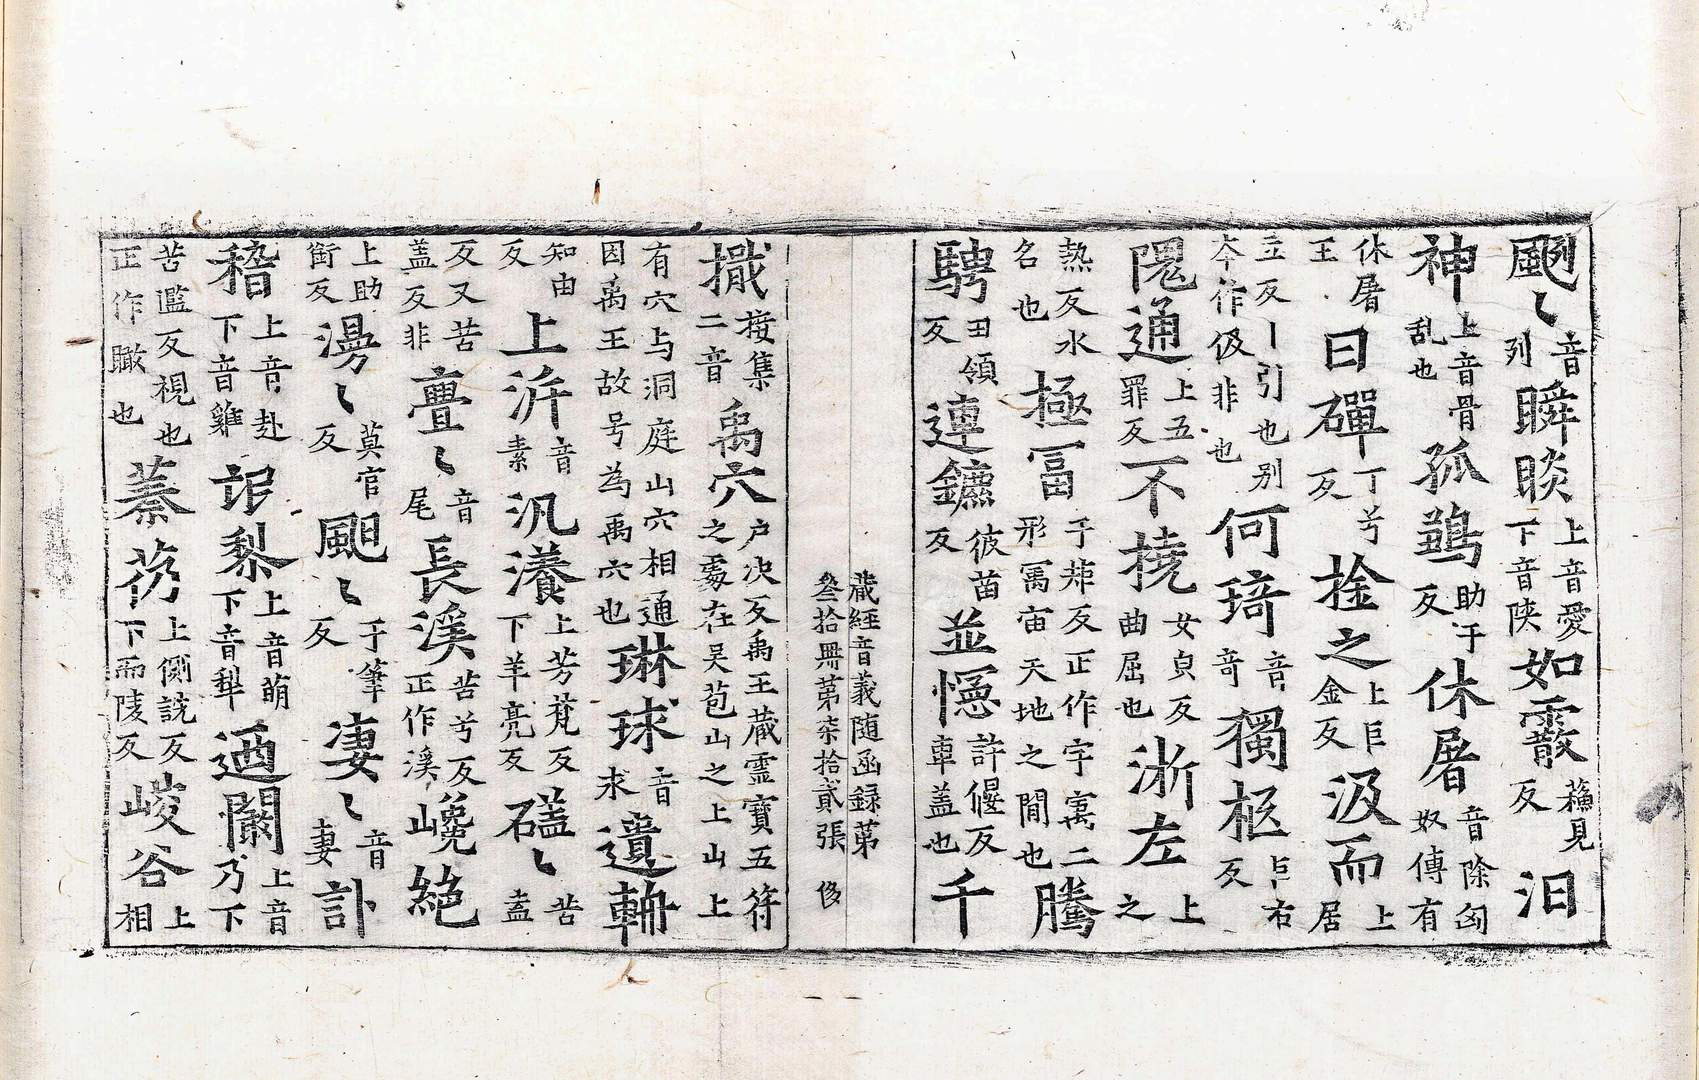 颲〻音列瞬睒上音愛下音陜如霰蘓見反汨
神上音骨乱也孤鵡助于反休屠音除匈奴傳有
休屠王日磾丁兮反拴之上巨金反汲而上居
立反丨引也别夲作伋非也何琦音奇獨柩巨右反
隗通上五罪反不撓女貞反曲屈也浙左上之
熱反水名也極冨于菲反正作宇寓二形寓宙天地之間也騰
騁丑領反連鑣彼苗反並幰許偃反車盖也千
藏經音義随函録第叁拾冊第柒拾貳張 侈
撖接集二音禹穴户决反禹王蔵霊寶五符之處在吴苞山之上山上
有穴与洞庭山穴相通因禹王故号為禹穴也琳球音求遺軸
知由反上泝音素汎瀁上芳𦫖反下羊亮反礚〻苦盍
反又苦盖反非亹〻音尾長溪苦兮反正作溪巉絕
上助銜反漫〻莫官反颶〻于筆反凄〻音妻訃
稽上音赴下音雞䛐黎上音萌下音犁迺闌上音乃下
苦濫反視也正作瞰也蓁艿上側詵反下而陵反峻谷上相